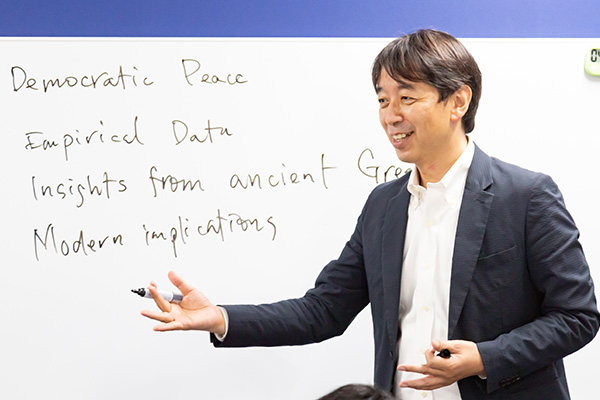 Democratic Peace
Empirical Data
Insights from ancient Gree
Modern implications